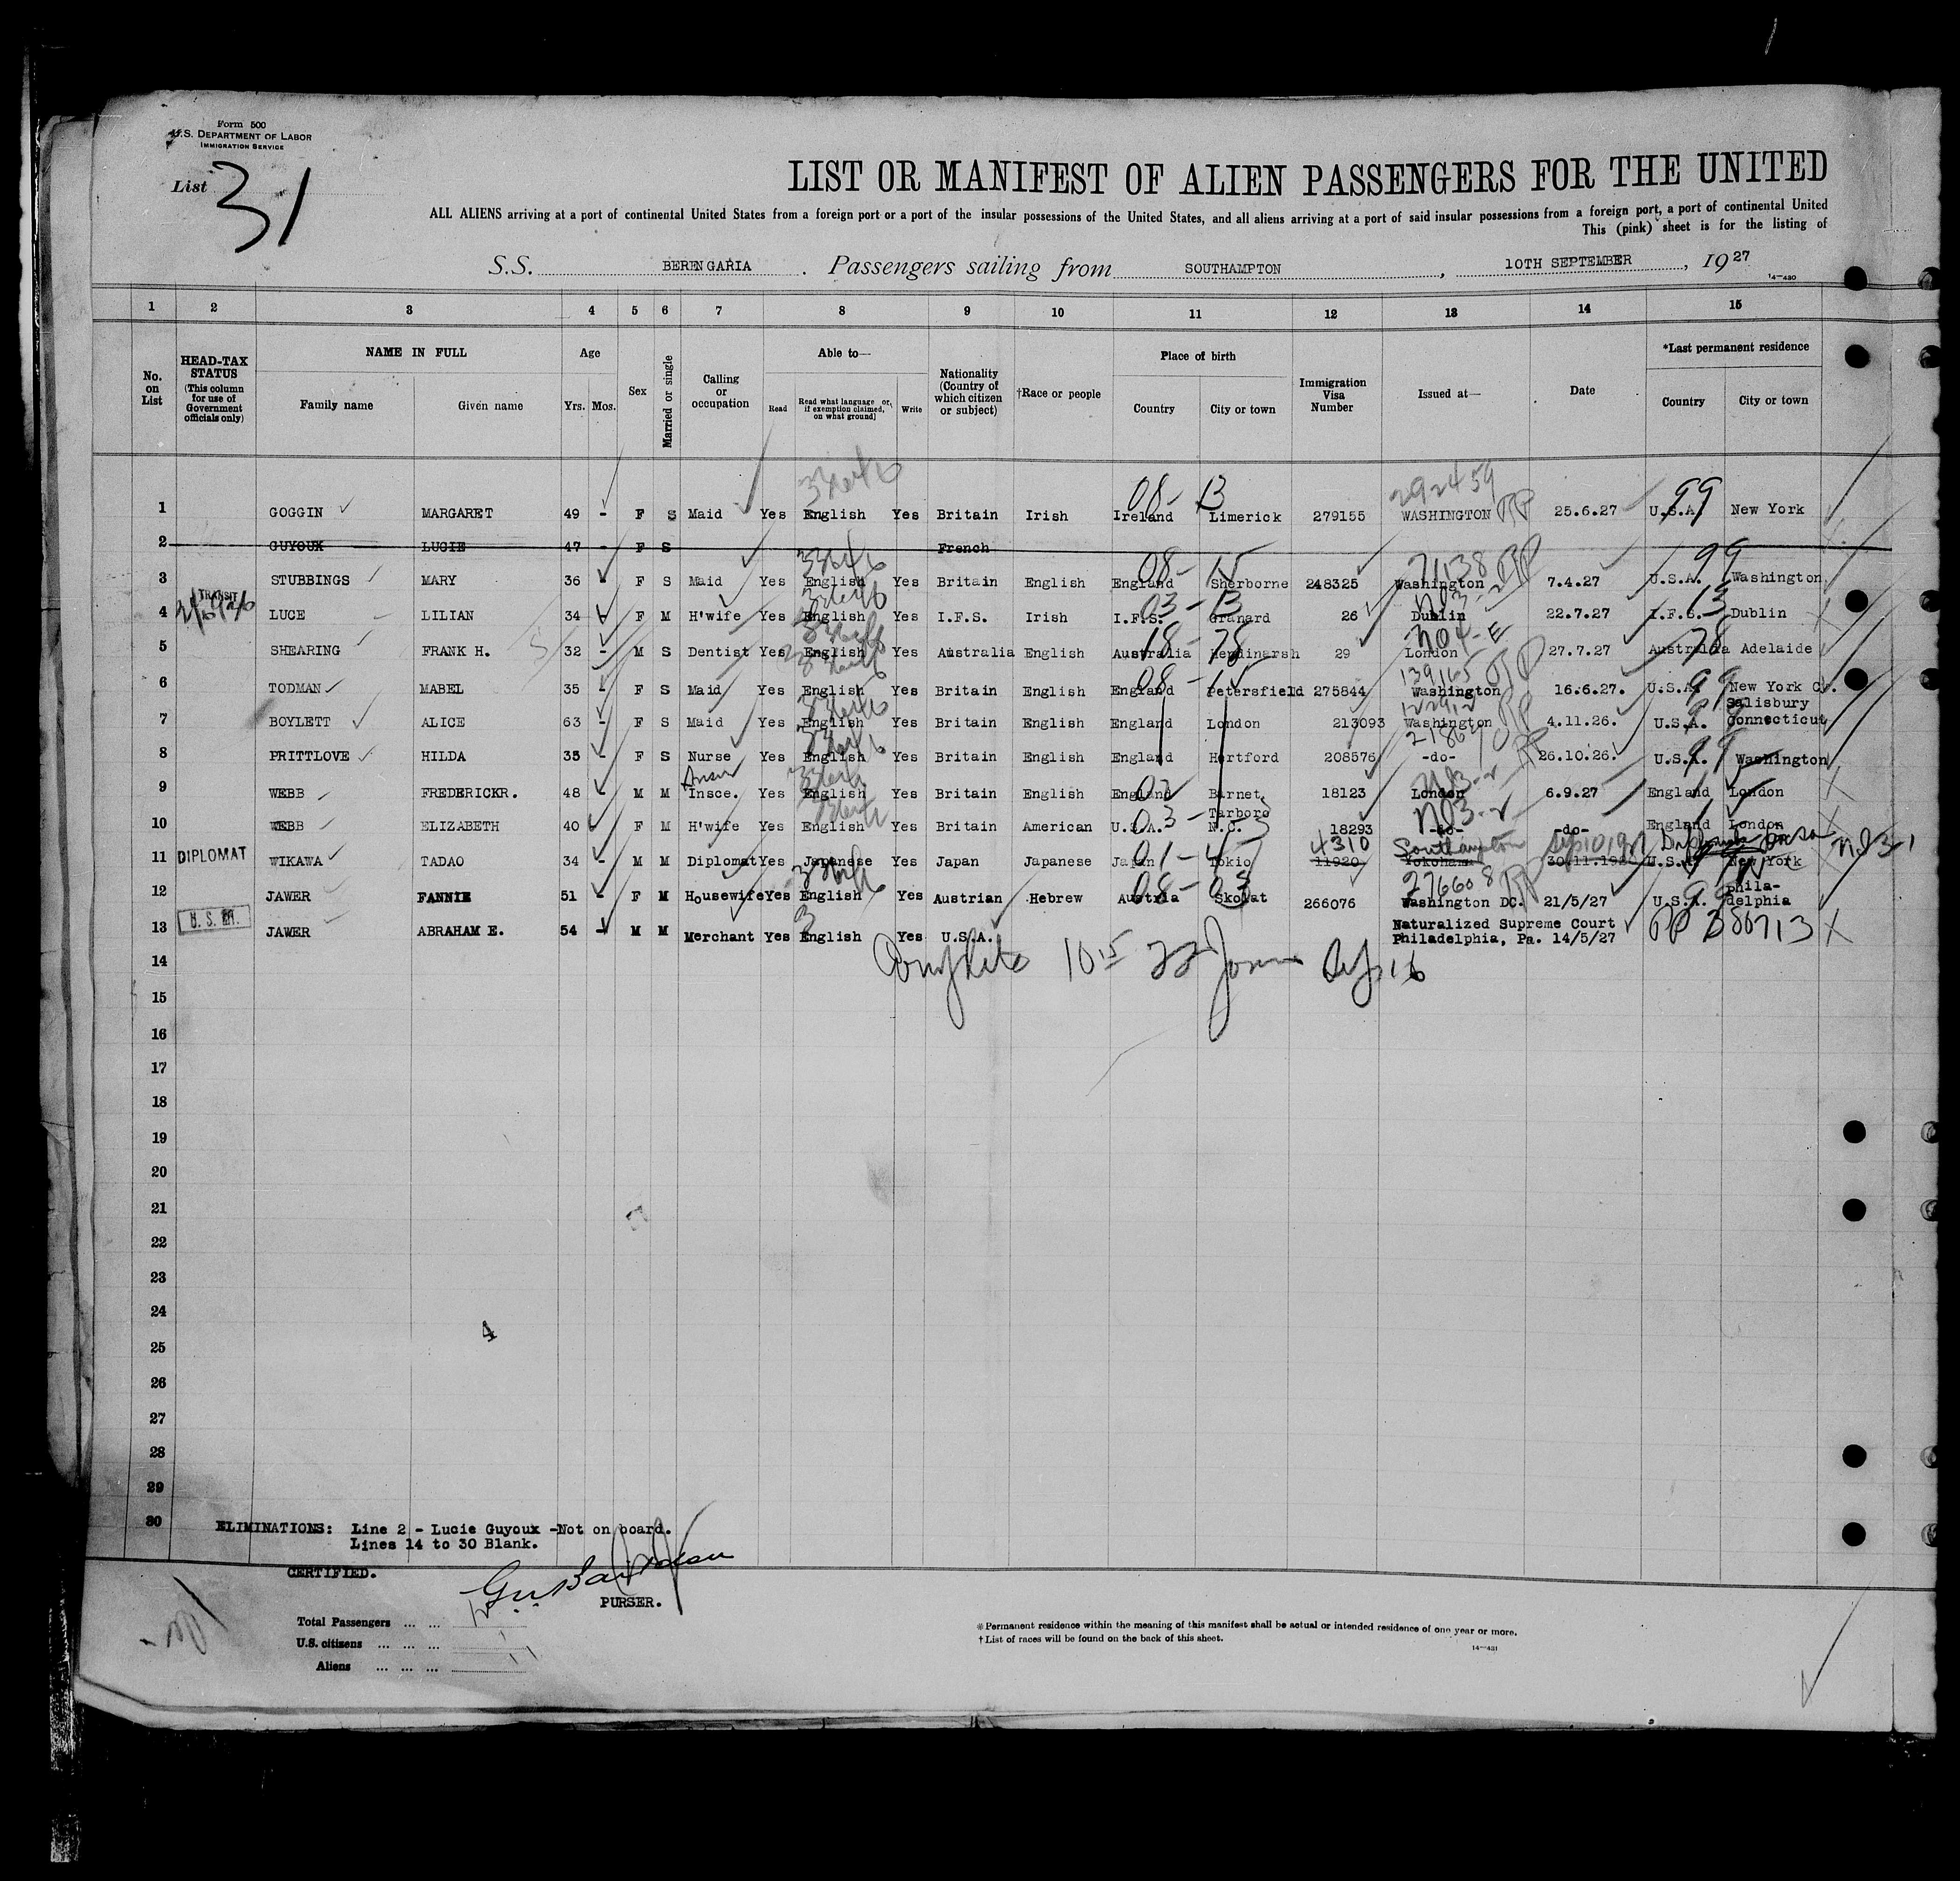 Form 500
U.S. DEPARTMENT OF LABOR
IMMIGRATION SERVICE
List 31
LIST OR MANIFEST OF ALIEN PASSENGERS FOR THE UNITED
ALL ALIENS arriving at a port of continental United States from a foreign port or a port of the insular possessions of the United States, and all aliens arriving at a port of said insular possessions from a foreign port, a port of continental United
This (pink) sheet is for the listing of
S.S. BERENGARIA . Passengers sailing from SOUTHAMPTON , 10TH SEPTEMBER , 1927
14—430
1 2 3 4 5 6 7 8 9 10 11 12 13 14 15
No. on List
HEAD-TAX STATUS (This column for use of Government officials only)
NAME IN FULL
Family name Given name
Age
Yrs. Mos.
Sex
Married or single
Calling or occupation
Able to—
Read Read what language or, if exemption claimed, on what ground) Write
Nationality (Country of which citizen or subject)
†Race or people
Place of birth
Country City or town
Immigration Visa Number
Issued at—
Date
*Last permanent residence
Country City or town
292459
08- 13 99
1 GOGGIN MARGARET 49 - F S Maid Yes English Yes Britain Irish Ireland Limerick 279155 WASHINGTON 25.6.27 U.S.A. New York
2 GUYOUX LUCIE 47 - F S French
08- 15 71138 99
3 STUBBINGS MARY 36 - F S Maid Yes English Yes Britain English England Sherborne 248325 Washington 7.4.27 U.S.A. Washington
TRANSIT
03-13 13
4 LUCE LILIAN 34 F M H'wife Yes English Yes I.F.S. Irish I.F.S. Granard 26 Dublin 22.7.27 I.F.S. Dublin
18-78 NO4-E 78
5 SHEARING FRANK H. 32 - M S Dentist Yes English Yes Australia English Australia 29 London 27.7.27 Australia Adelaide
08-15 139165 99
6 TODMAN MABEL 35 - F S Maid Yes English Yes Britain English England Petersfield 275844 Washington 16.6.27. U.S.A. New York C.
7 BOYLETT ALICE 63 - F S Maid Yes English Yes Britain English England London 213093 Washington 4.11.26. U.S.A. Salisbury Connecticut
8 PRITTLOVE HILDA 35 - F S Nurse Yes English Yes Britain English England Hertford 208576 -do- 26.10.26. U.S.A. Washington
9 WEBB FREDERICKR. 48 - M M Insce. Yes English Yes Britain English England Barnet. 18123 London 6.9.27 England London
10 WEBB ELIZABETH 40 F M H'wife Yes English Yes Britain American U.S.A. Tarboro N.C. 18293 -do- -do- England London
4310 Southampton
11 DIPLOMAT WIKAWA TADAO 34 - M M Diplomat Yes Japanese Yes Japan Japanese Japan Tokio 11920 Yokohama U.S.A. New York
276608
12 JAWER FANNIE 51 - F M Housewife Yes English Yes Austrian Hebrew Austria Skolat 266076 Washington DC. 21/5/27 U.S.A. phila-delphia
13 JAWER ABRAHAM E. 54 - M M Merchant Yes English Yes U.S.A. Naturalized Supreme Court Philadelphia, Pa. 14/5/27
14
15
16
17
18
19
20
21
22
23
24
25
26
27
28
29
30
4
ELIMINATIONS: Line 2 - Lucie Guyoux -Not on board.
Lines 14 to 30 Blank.
CERTIFIED.
PURSER.
Total Passengers ... ...
U.S. citizens ... ... ...
Aliens ... ... ...
*Permanent residence within the meaning of this manifest shall be actual or intended residence of one year or more.
†List of races will be found on the back of this sheet.
14—431